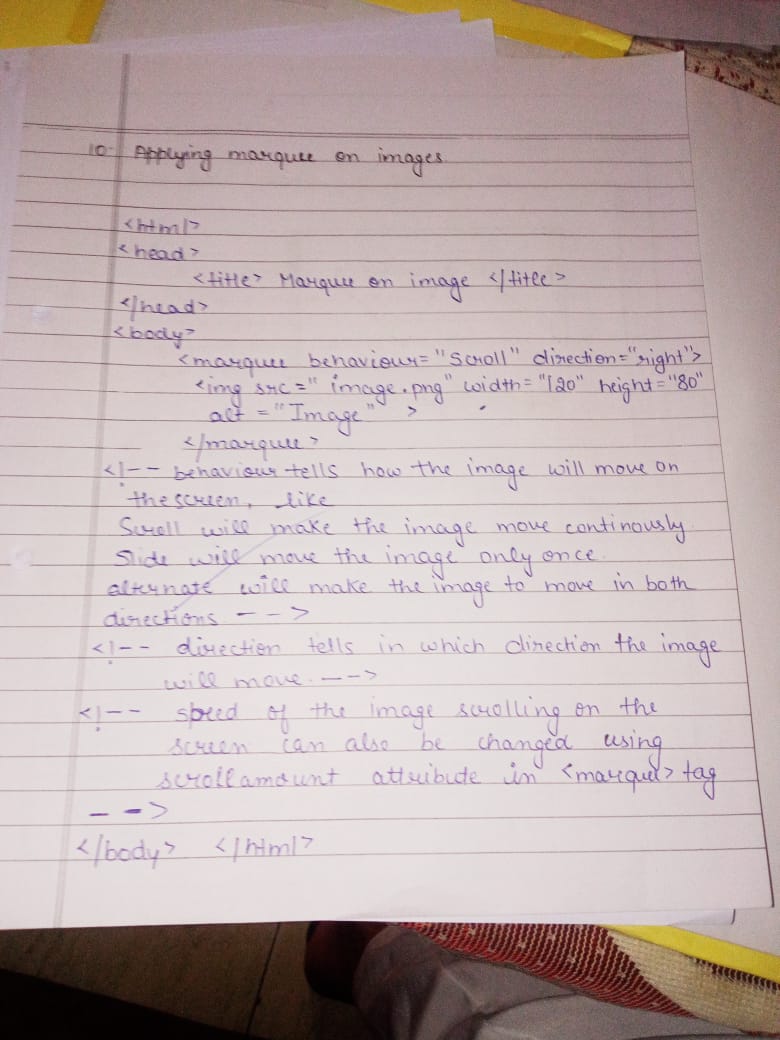 10. Applying marquee on images.
<html>
<head>
<title> Marquee on image </title>
</head>
<body>
<marquee behaviour="Scroll" direction="right">
<img src=" image.png" width="120" height="80"
alt ="Image" >
</marquee>
<!-- behaviour tells how the image will move on
the screen, like
Scroll will make the image move continously.
Slide will move the image only once.
alternate will make the image to move in both
directions -->
<!-- direction tells in which direction the image
will move. -->
<!-- speed of the image scrolling on the
screen can also be changed using
scrollamount attribute in <marquee> tag
-->
</body> </html>